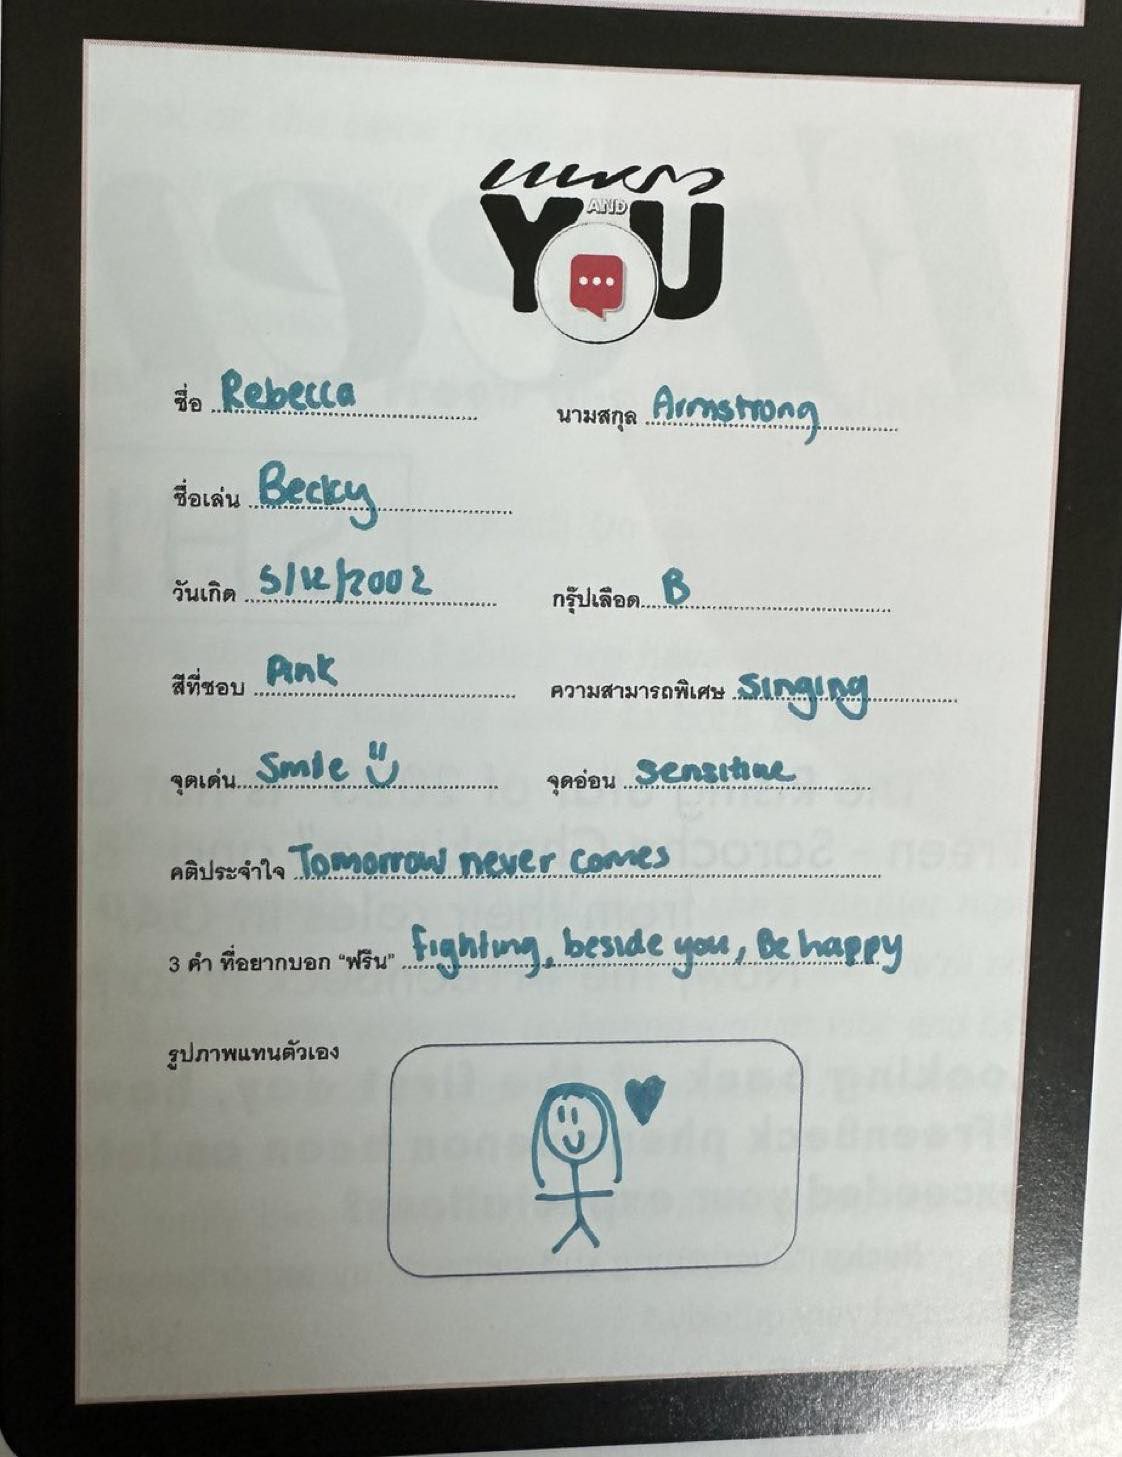 แพรว
AND
YOU
ชื่อ Rebecca นามสกุล Armstrong
ชื่อเล่น Becky
วันเกิด 5/12/2002 กรุ๊ปเลือด B
สีที่ชอบ Pink ความสามารถพิเศษ singing
จุดเด่น Smile จุดอ่อน sensitive
คติประจำใจ Tomorrow never comes
3 คำ ที่อยากบอก “ฟรีน” fighting, beside you, Be happy
รูปภาพแทนตัวเอง